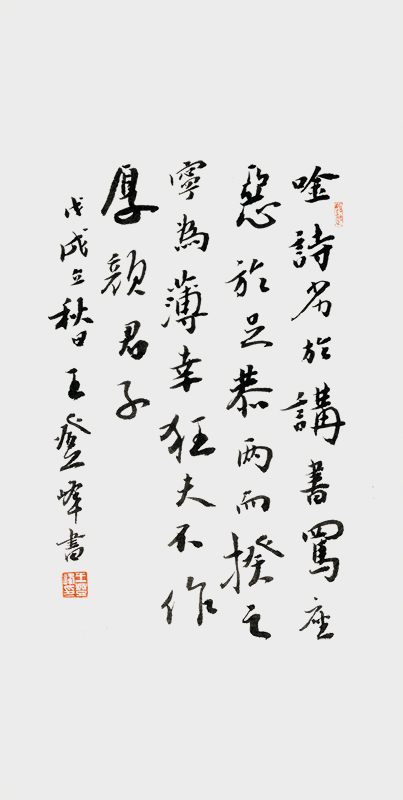 唫詩劣於講書罵座
惡於足恭兩而揆之
寧為薄幸狂夫不作
厚顏君子
戊戌立秋日王登峰書